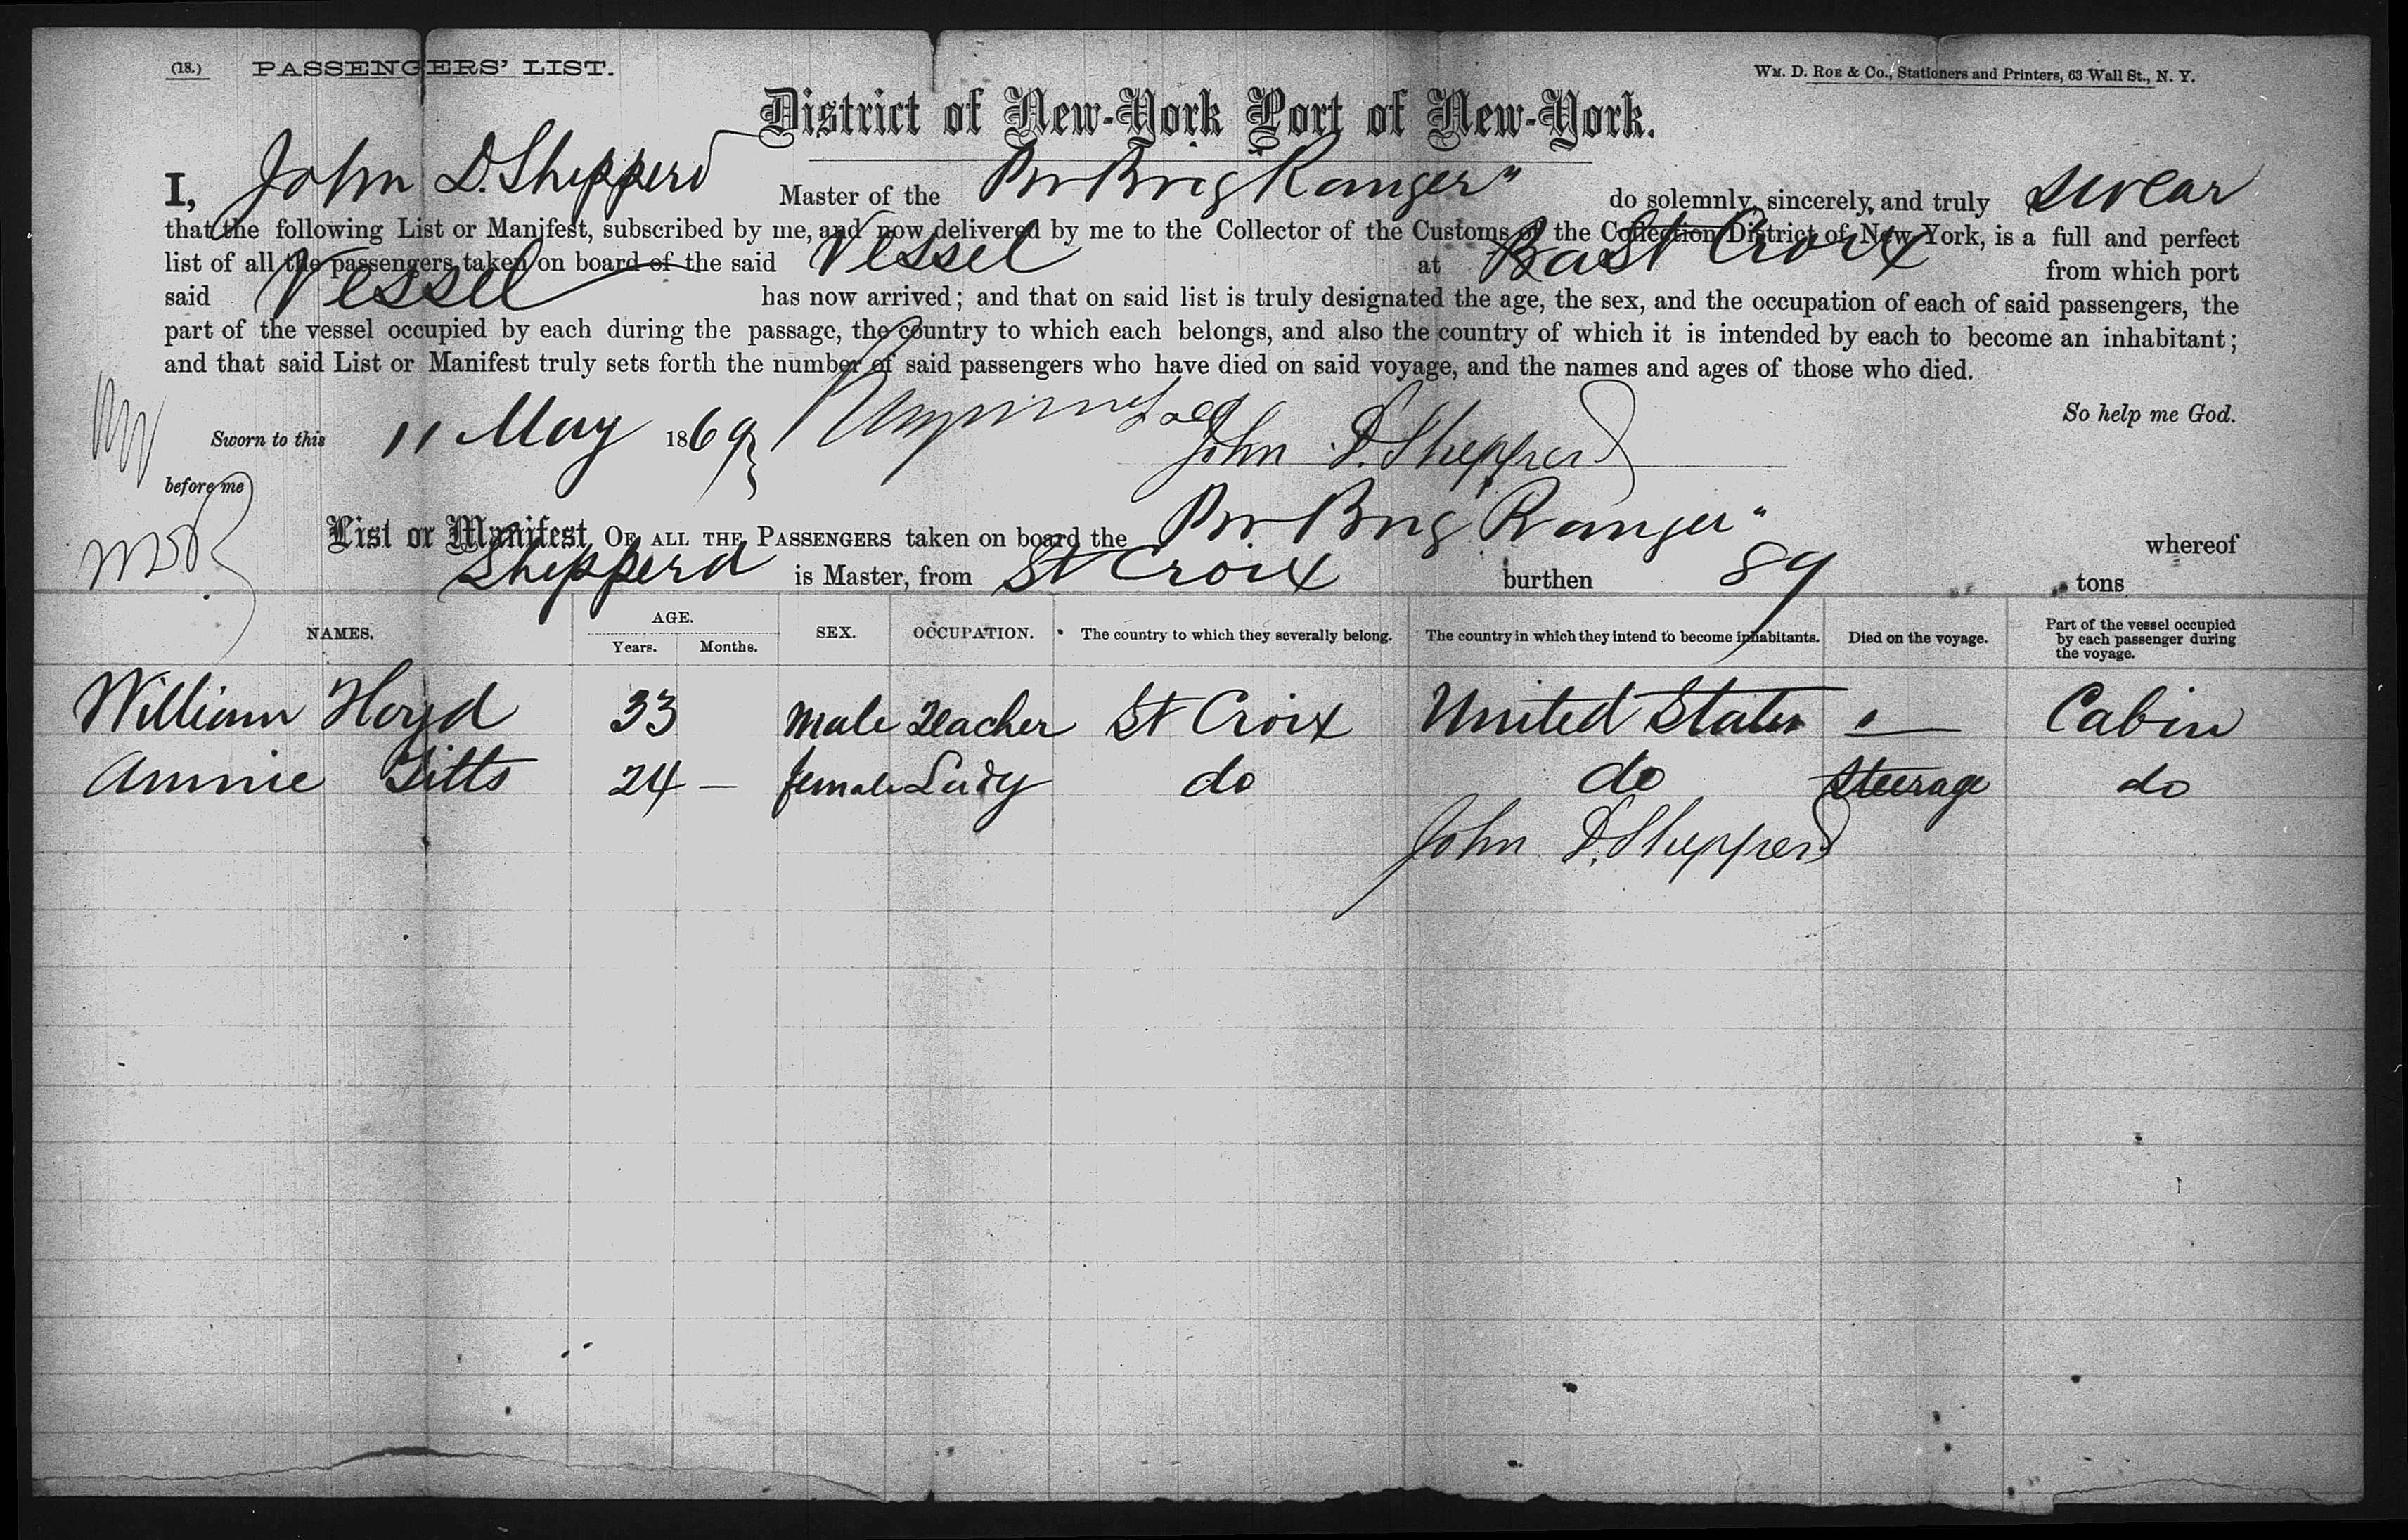 (18.) PASSENGERS' LIST.
WM. D. ROE & Co., Stationers and Printers, 63 Wall St., N. Y.
District of New-York Port of New-York.
I, John D. Shepperd Master of the Br Brig Ranger" do solemnly, sincerely, and truly swear
that the following List or Manifest, subscribed by me, and now delivered by me to the Collector of the Customs of the Collection District of New York, is a full and perfect
list of all the passengers taken on board of the said Vessel at St Croix from which port
said Vessel has now arrived; and that on said list is truly designated the age, the sex, and the occupation of each of said passengers, the
part of the vessel occupied by each during the passage, the country to which each belongs, and also the country of which it is intended by each to become an inhabitant;
and that said List or Manifest truly sets forth the number of said passengers who have died on said voyage, and the names and ages of those who died.
So help me God.
Sworn to this 11 May 1869 John D. Shepperd
before me
List or Manifest OF ALL THE PASSENGERS taken on board the Br Brig Ranger" whereof
Shepperd is Master, from St Croix burthen 89 tons
NAMES. AGE. Years. Months. SEX. OCCUPATION. The country to which they severally belong. The country in which they intend to become inhabitants. Died on the voyage. Part of the vessel occupied by each passenger during the voyage.
William 33 male Teacher St Croix United States — Cabin
Annie Titts 24 — female Lady do do Steerage do
John D. Shepperd